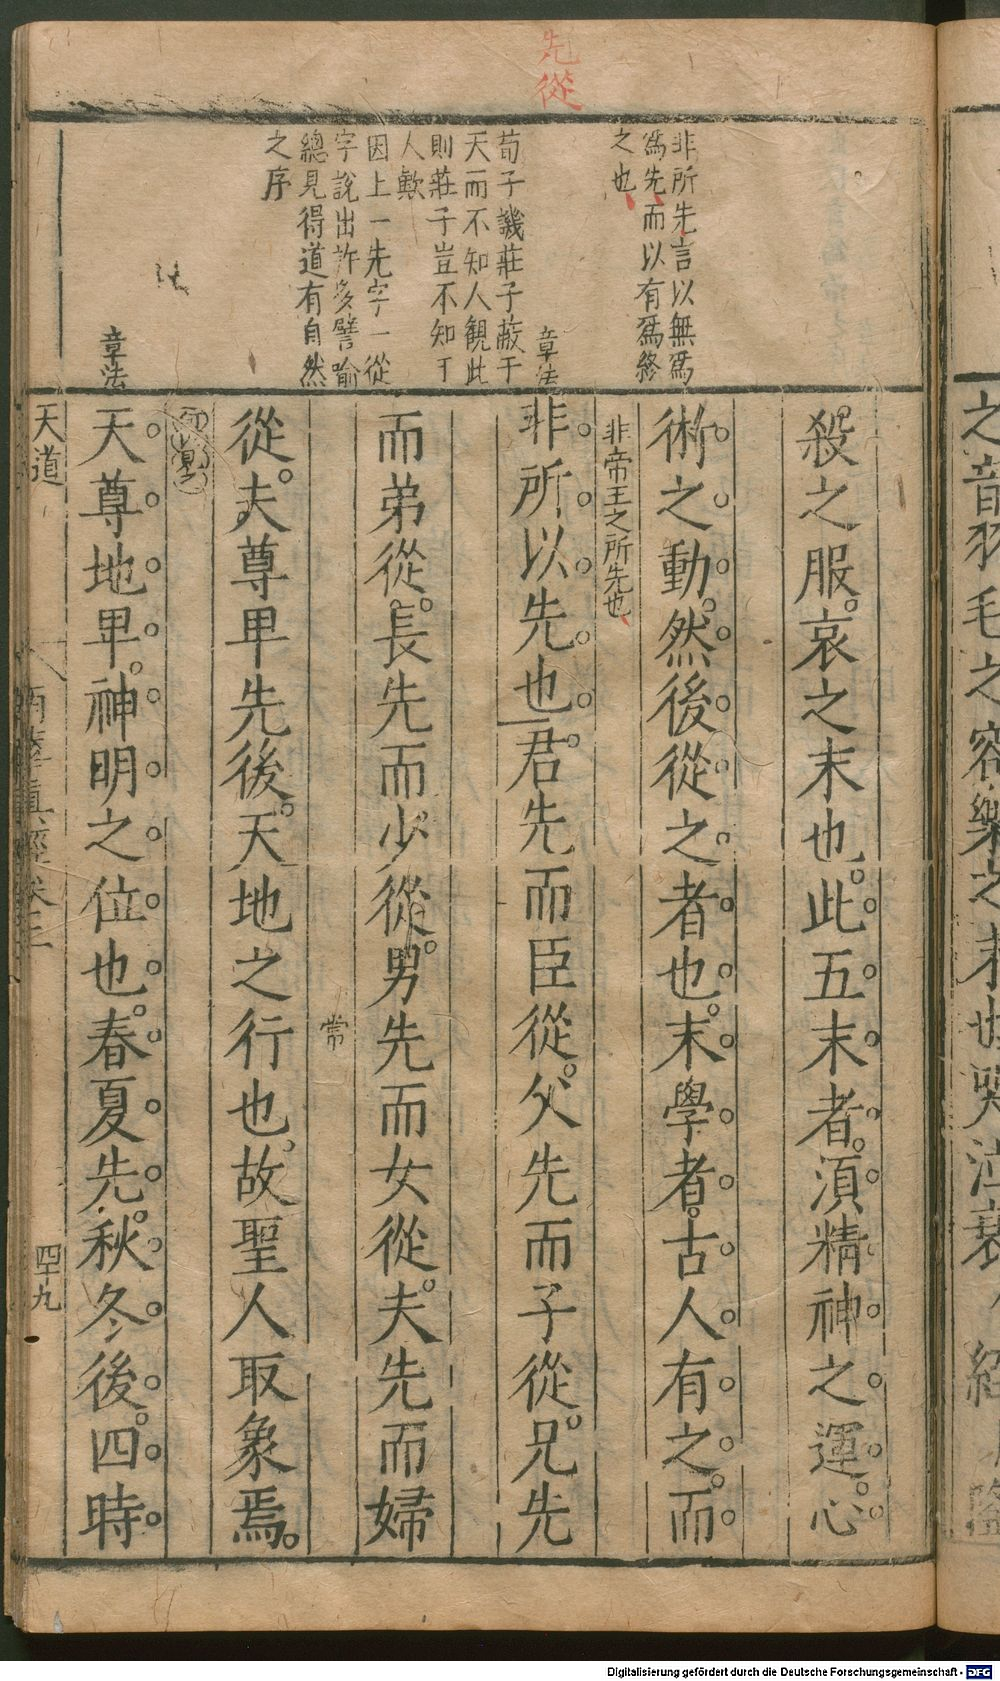 先從
非所先言以無爲
爲先而以有爲終
之也
章法
荀子譏莊子蔽于
天而不知人觀此
則莊子豈不知于
人歟
因上一先字一從
字說出許多譬喻
總見得道有自然
之序
章法
殺之服哀之末也此五末者須精神之運心
術之動然後從之者也末學者古人有之而
非帝王之所先也
非所以先也君先而臣從父先而子從兄先
而弟從長先而少從男先而女從夫先而婦
常
從夫尊卑先後天地之行也故聖人取象焉
天尊地卑神明之位也春夏先秋冬後四時
天道
南華眞經卷三
四十九
Digitalisierung gefördert durch die Deutsche Forschungsgemeinschaft - DFG